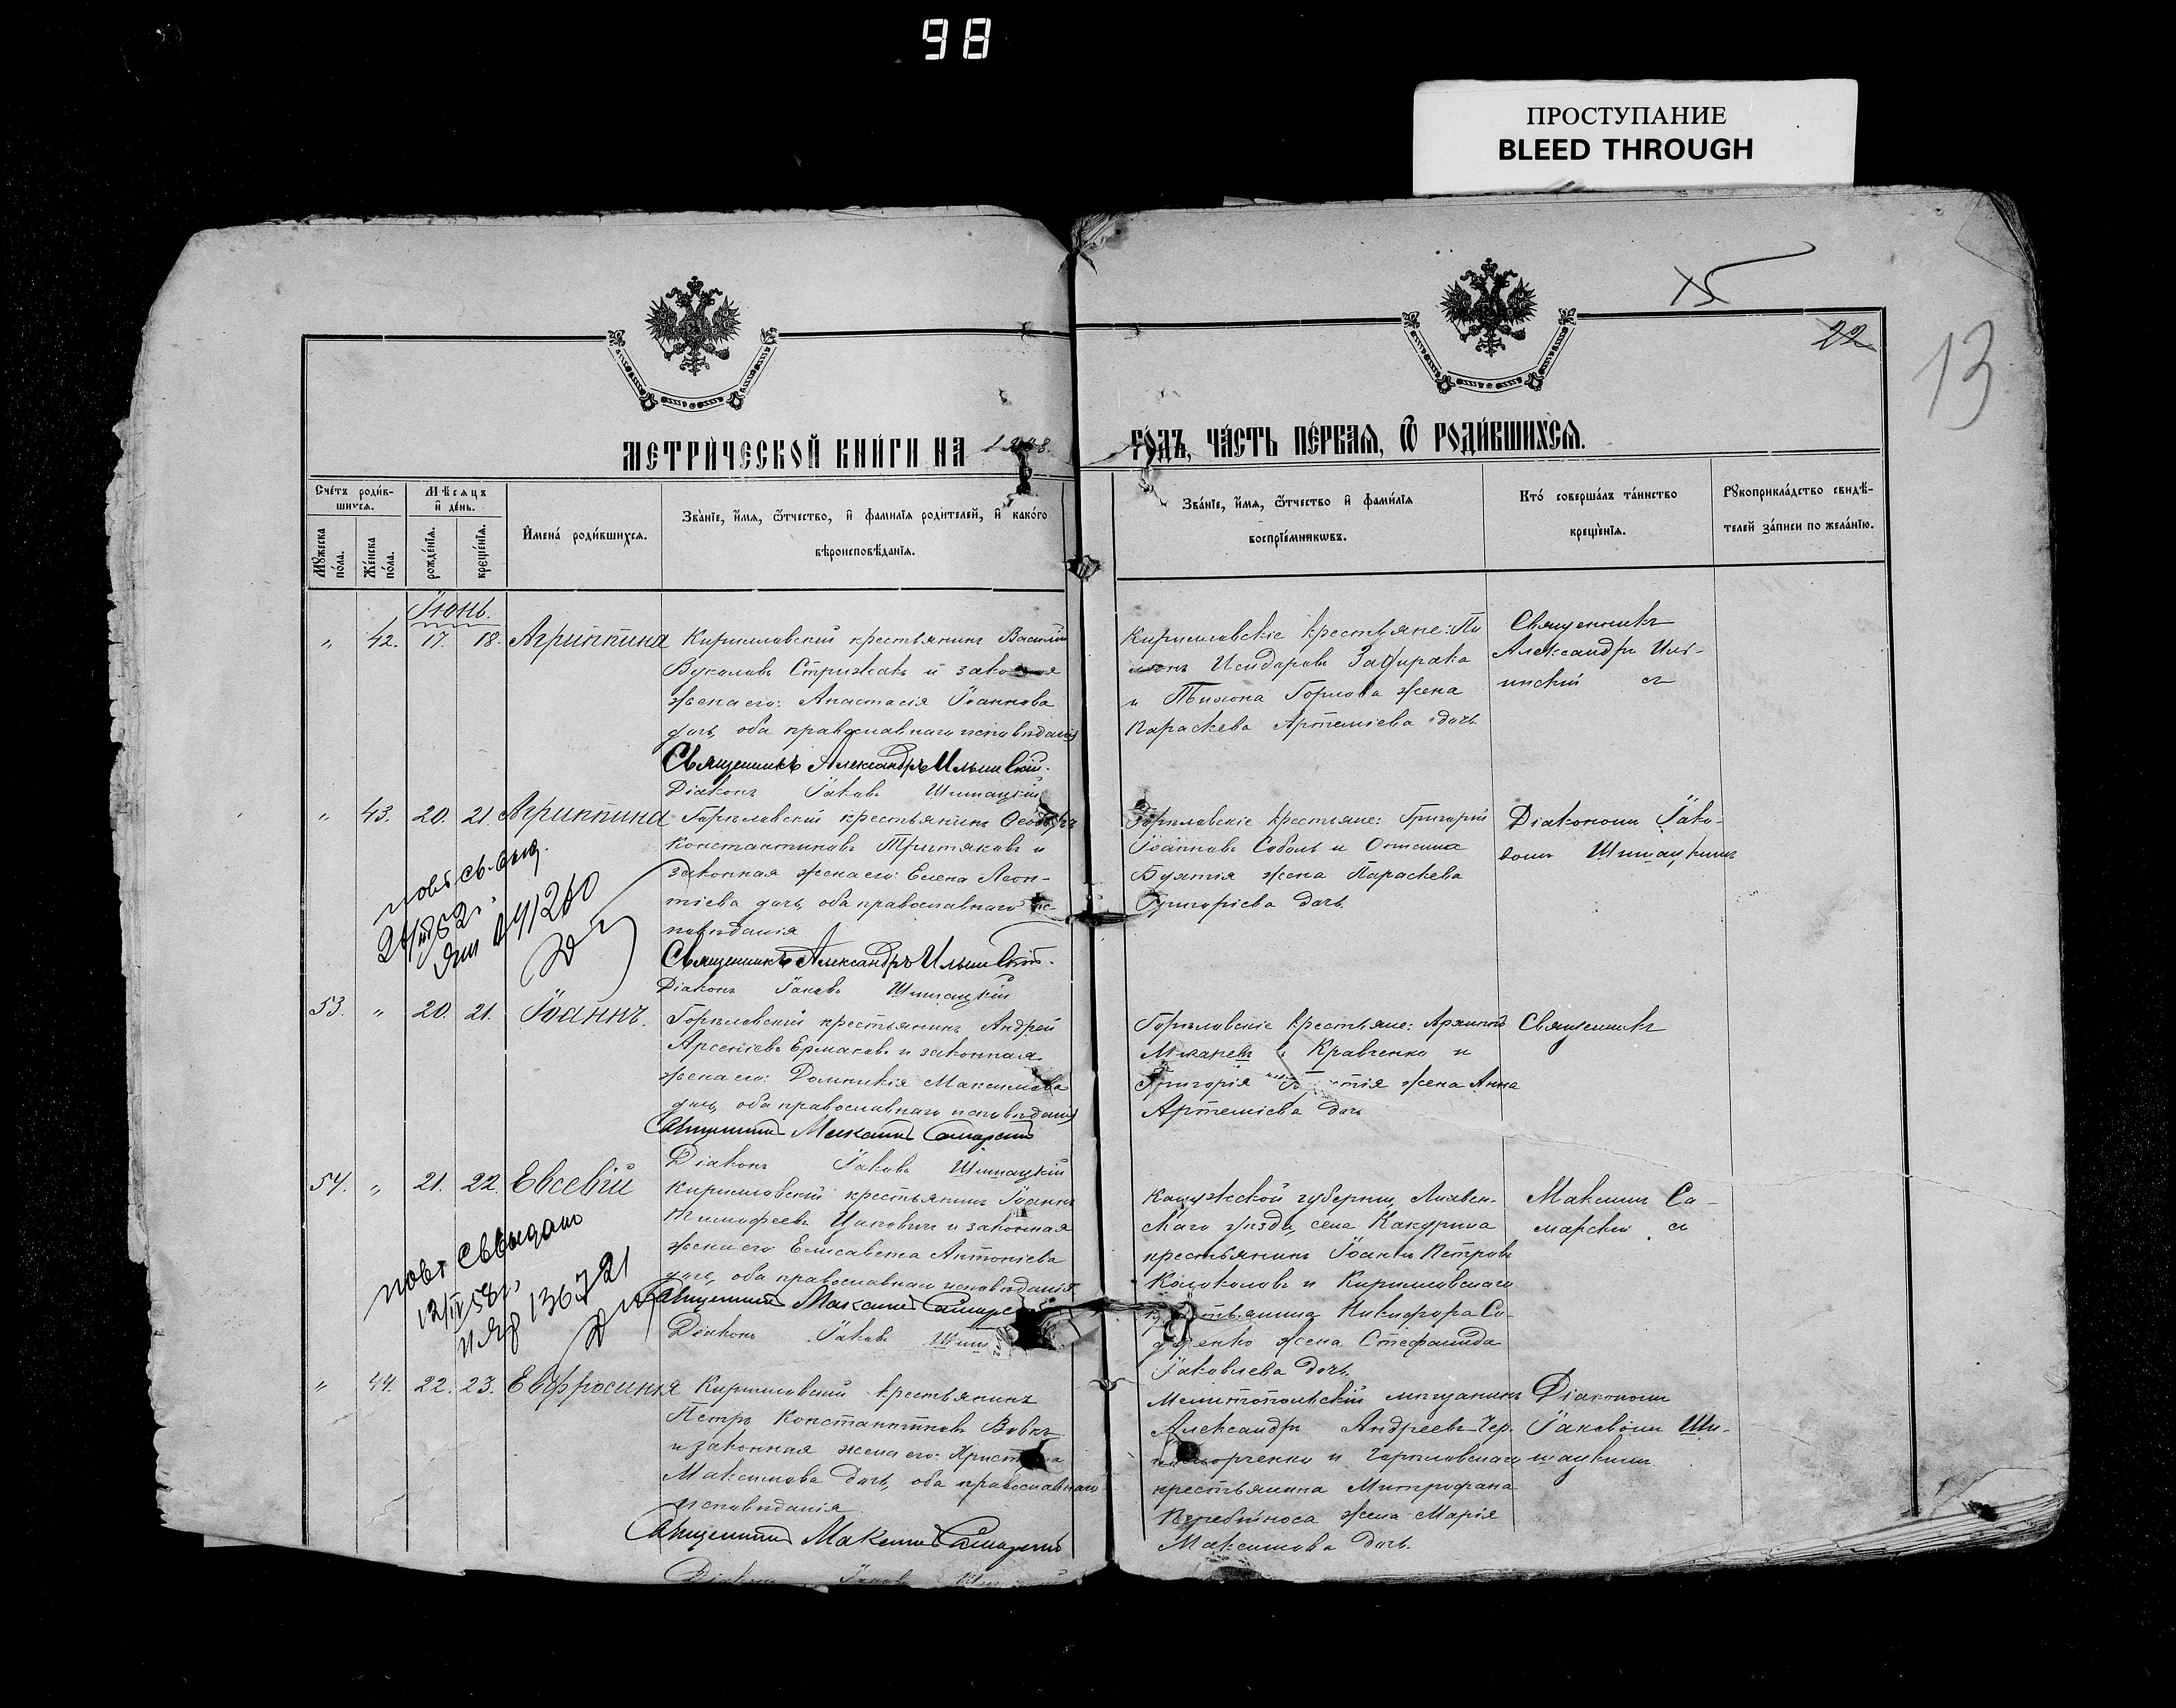 98
ПРОСТУПАНИЕ
BLEED THROUGH
15
22
13
МЕТРИЧЕСКОЙ КНИГИ НА
ГОДЪ, ЧАСТЬ ПЕРВАЯ, Ѿ РОДИВШИХСЯ.
Счетъ родив-
шихся.
Мѣсяцъ
и день.
Мужеска
пола.
Женска
пола.
рожденія.
крещенія.
Имена родившихся.
Званіе, имя, ѿчество, и фамилія родителей, и какого
вѣроисповѣданія.
Званіе, имя, ѿчество и фамилія
воспріемниковъ.
Кто совершалъ таинство
крещенія.
Рукоприкладство свидѣ-
телей записи по желанію.
Іюнь.
" 42. 17. 18. Агриппина
Кирилловскій крестьянинъ Василій
Вуколовъ Стрижакъ и законная
жена его: Анастасія Іоаннова
дочь, оба православнаго исповѣданія
Священникъ Александръ Ильинскій.
Діаконъ Іаковъ Шишацкій
Кирилловскіе крестьяне:
Исидоровъ
и жена
Параскева Артеміева дочь.
Священникъ
Александръ Иль-
инскій съ
" 43. 20. 21. Агриппина
Горѣловскій крестьянинъ Ѳеодоръ
Константиновъ Третяковъ и
законная жена его: Елена Леон-
тіева дочь, оба православнаго ис-
повѣданія
Священникъ Александръ Ильинскій.
Діаконъ Іаковъ Шишацкій
Горѣловскіе крестьяне: Григорій
Іоанновъ Соболь и
жена Параскева
Григоріева дочь.
Діакономъ Іако-
вомъ Шишацкимъ
53. " 20. 21. Іоаннъ.
Горѣловскій крестьянинъ Андрей
Арсеніевъ Ермаковъ и законная
жена его: Домникія Максимова
дочь, оба православнаго исповѣданія
Священникъ Максимъ Самарскій
Діаконъ Іаковъ Шишацкій
Горѣловскіе крестьяне:
Кравченко и
Григорія жена Анна
Артеміева дочь
Священникъ
54. " 21. 22. Евсевій
Кирилловскій крестьянинъ Іоаннъ
Тимофеевъ и законная
жена его Елисавета Антоніева
дочь, оба православнаго исповѣданія
Священникъ Максимъ
Діаконъ Іаковъ
Калужской губерніи,
скаго уѣзда, села
крестьянинъ Іоаннъ Петровъ
Колоколовъ и Кирилловскаго
крестьянина Никифора
жена Стефанида
Іаковлева дочь.
Максимъ Са-
марскій съ
136721
" 44. 22. 23. Евфросинія
Кирилловскій крестьянинъ
Петръ Константиновъ Вовкъ
и законная жена его: Христина
Максимова дочь, оба православнаго
исповѣданія
Священникъ Максимъ Самарскій
Мелитопольскій мѣщанинъ
Александръ Андреевъ
и Горѣловскаго
крестьянина Митрофана
Перебийноса жена Марія
Максимова дочь.
Діакономъ
Іаковомъ Ши-
шацкимъ.